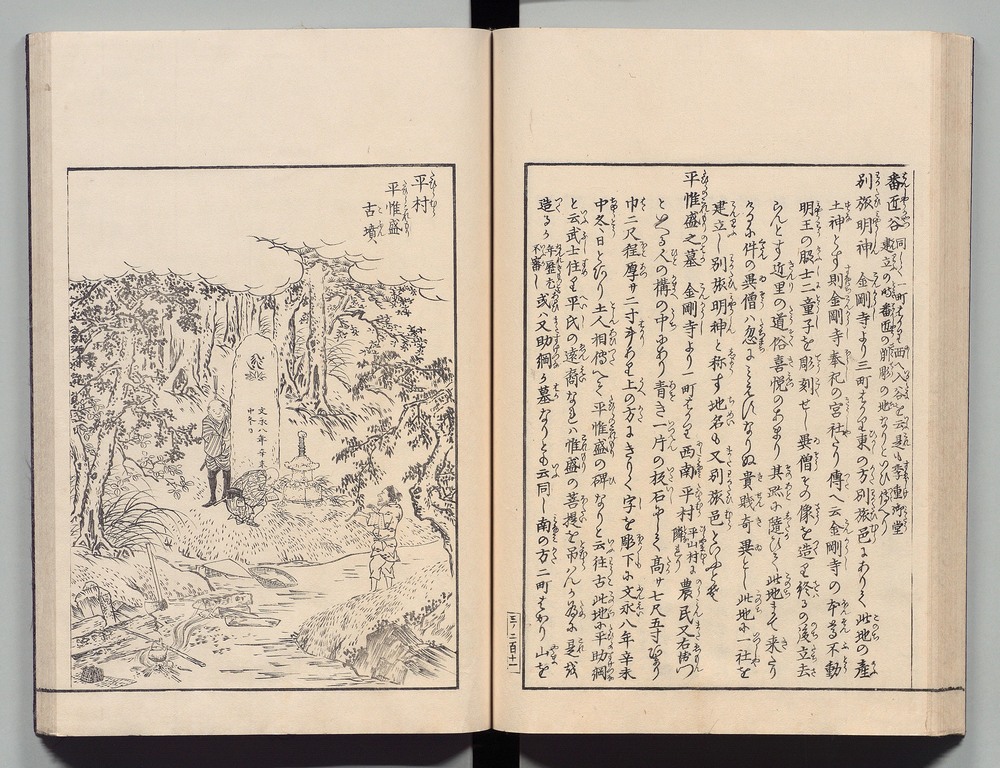 番匠谷 同しく一町はかり西入谷を云是も季重御堂
建立の時番匠の飾彫の地なりといひ傳へり
別旅明神 金剛寺より三町はかり東の方別旅邑にありて此地の産
土神とす則金剛寺奉祀の宮社たり傳へ云金剛寺の本尊不動
明王の脇士二童子を彫刻せし異僧その像を造り終るの後立去
らんとす近里の道俗喜悦のあまり其跡に隨ひて此地まて来たり
けるに件の異僧ハ忽にミえすなりぬ貴賤奇異とし此地に一社を
建立し別旅明神と称す地名も又別旅邑といふとそ
平惟盛之墓 金剛寺より一町はかり西南平村 平山村に隣る 農民又右衛門
といへる人の構の中にあり青き一片の板石にして高サ七尺五寸はかり
巾二尺程厚サ二寸斗あり上の方にきりく字を彫下に文永八年辛未
中冬日とあり土人相傳へて平惟盛の碑なりと云往古此地に平助綱
と云武士住り平氏の遠裔なれハ惟盛の菩提を吊んか為に是を
造るか 年歴尤不審し 或ハ又助綱か墓なりとも云同し南の方二町はかり山を
三ノ二百十一
平村
平惟盛
古墳
文永八年辛未
中冬日